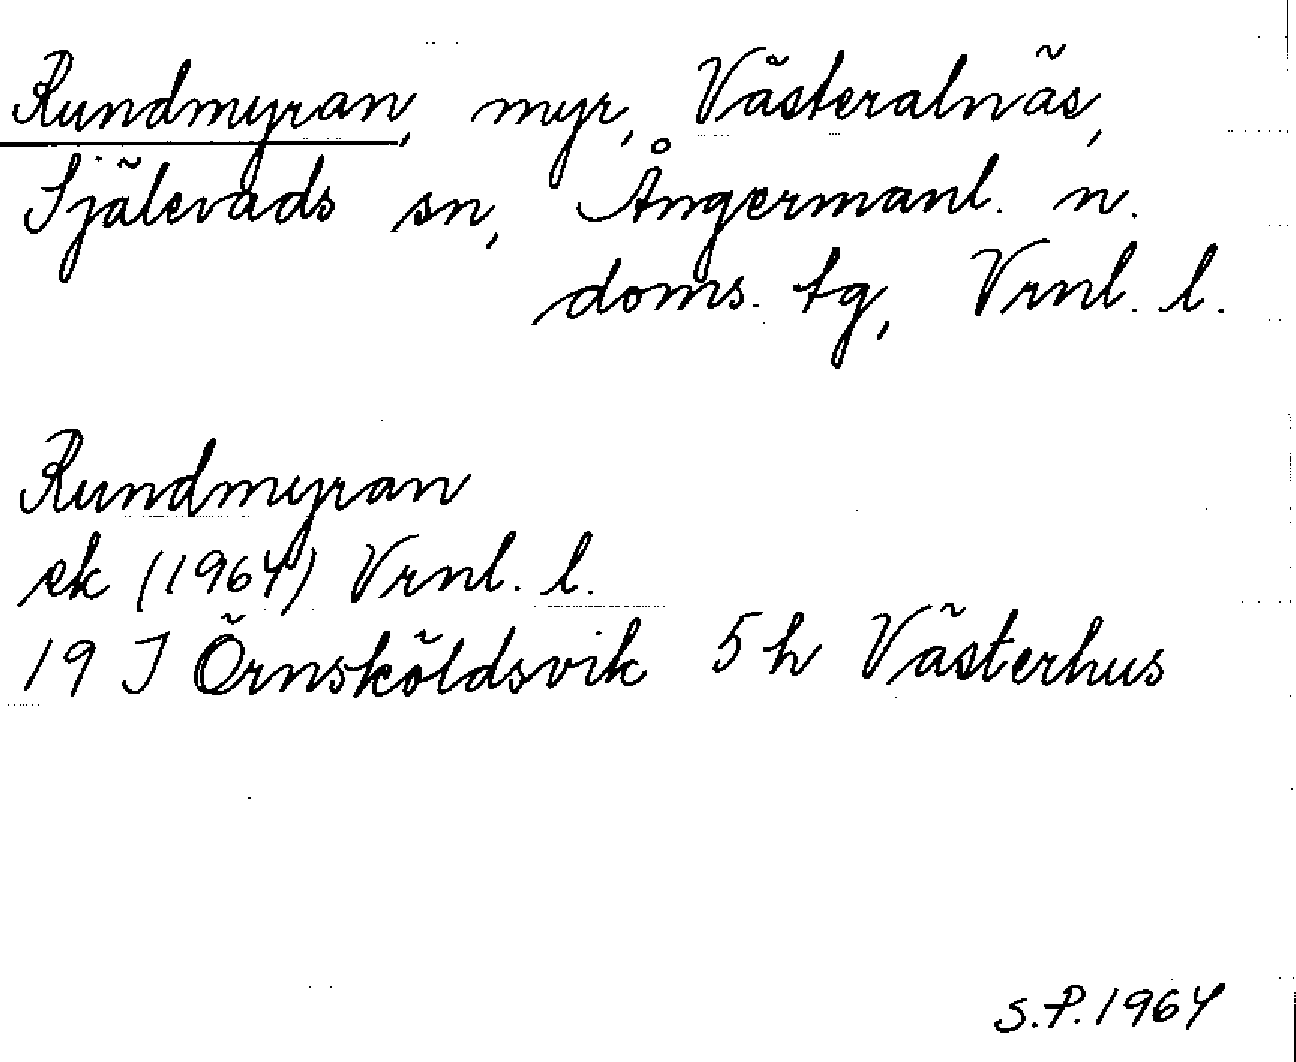 Rundmyran, myr, Västeralnäs,
Själevads sn, Ångermanl. n.
doms. tg, Vrnl. l.
Rundmyran
ek (1964) Vrnl. l.
19 J Örnsköldsvik 5 h Västerhus
S.P. 1964